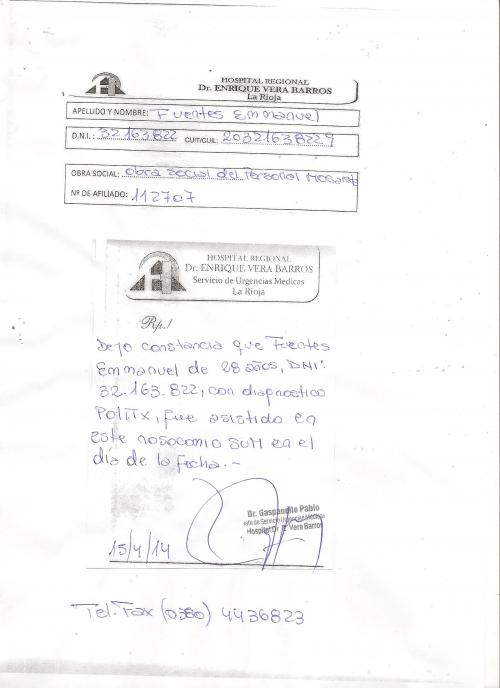 HOSPITAL REGIONAL
Dr. ENRIQUE VERA BARROS
La Rioja
APELLIDO Y NOMBRE: Fuentes Emmanuel
D.N.I. : 32163822 CUIT/CUIL: 20321638229
OBRA SOCIAL: Obra social del Personal Mosaista
Nº DE AFILIADO: 112707
HOSPITAL REGIONAL
Dr. ENRIQUE VERA BARROS
Servicio de Urgencias Medicas
La Rioja
Rp./
Dejo constancia que Fuentes
Emmanuel de 28 años, DNI:
32.163.822, con diagnostico
PoliTx, fue asistido en
este nosocomio SUM en el
día de la fecha.-
Dr. Gaspanello Pablo
Servicio Urgencias Medicas
Hospital Dr. E. Vera Barros
15/4/14
Tel.Fax (0380) 4436823